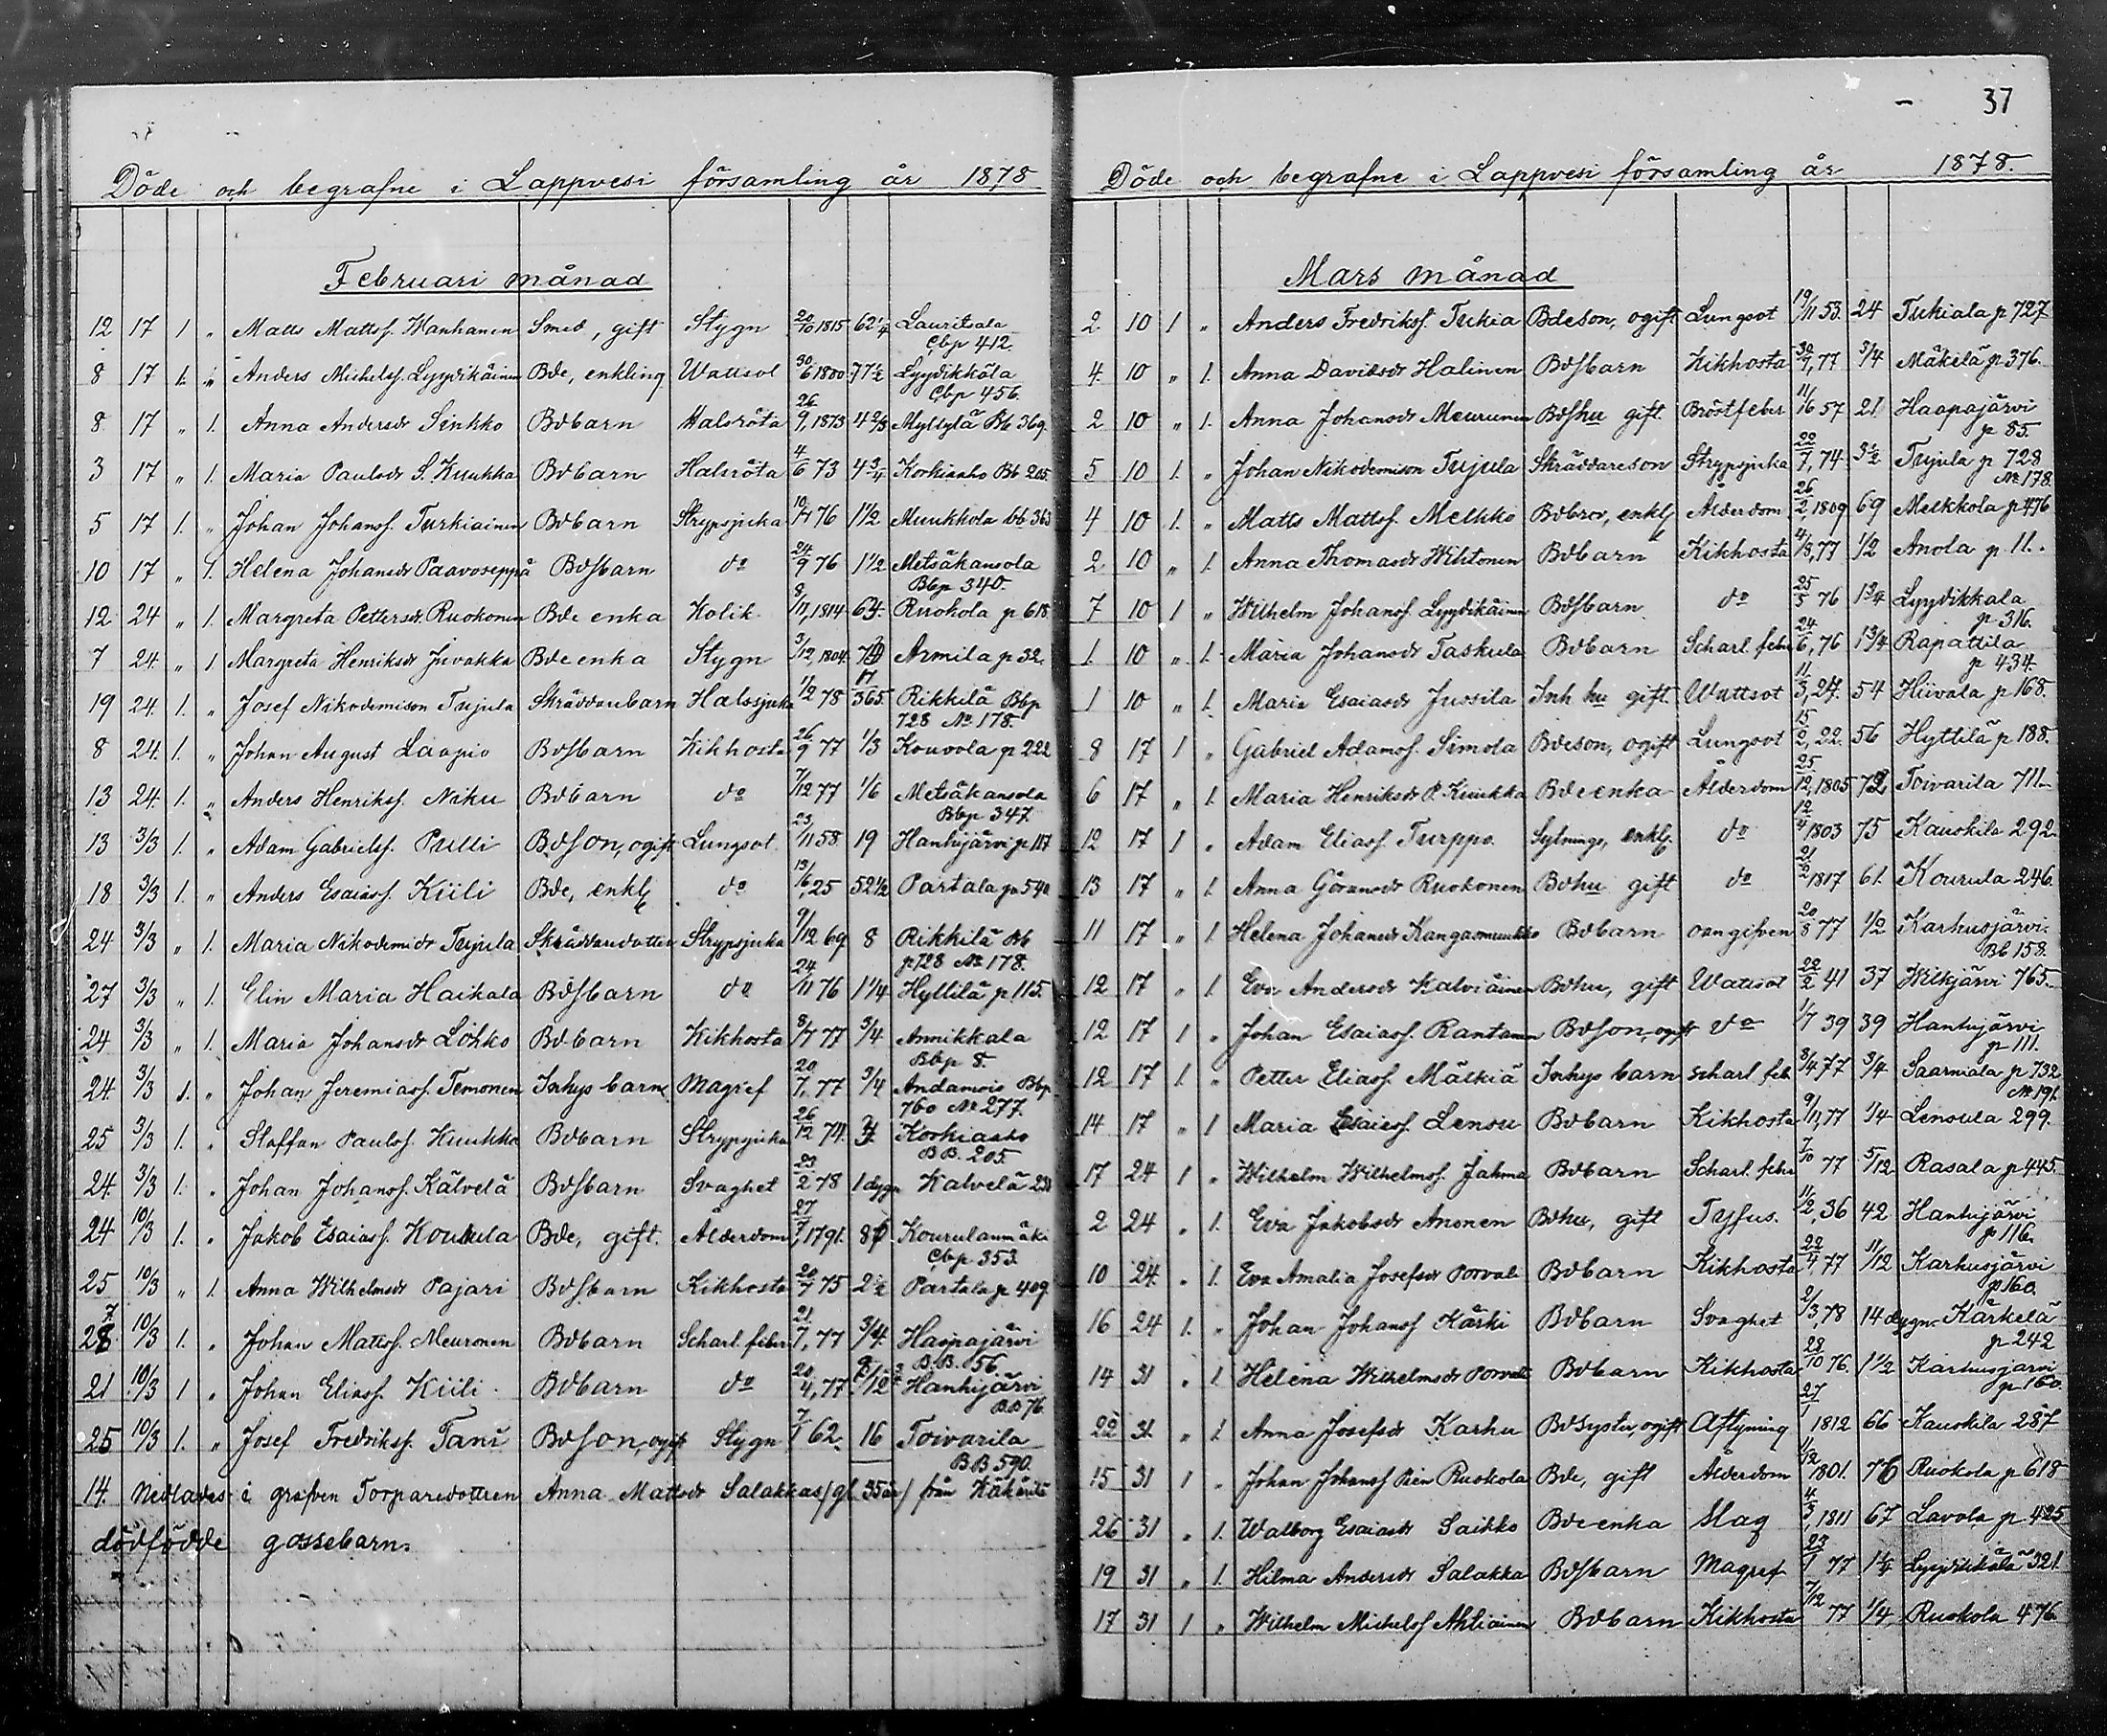 Döde och begrafne i Lappvesi församling år 1878
Februari månad
12 17 1 " Matts Mattsf. Hanhanen Smed, gift Stygn 20/10 1815 62 1/4 Lauritsala
Cbp 412.
8 17 1. " Anders Michelsf. Lyydikäinen Bde, enkling Wattsot 30/6 1800 77 1/2 Lyydikkälä
Cbp 456.
8 17 " 1. Anna Andersdr Sinkko Bdbarn Halsröta 26/9, 1873 4 2/3 Myllylä Bb 369.
3 17 " 1. Maria Paulsdr S. Kuukka Bdbarn Halsröta 4/6 73 4 3/4 Korkiaaho Bb 205.
5 17 1. " Johan Johansf. Turkiainen Bdbarn Strypsjuka 10/7 76 1 1/2 Muukkola bb 363
10 17 " 1. Helena Johansdr Paavoseppä Bdsbarn do 24/9 76 1 1/2 Metsäkansola
Bbp 340.
12 24 " 1. Margreta Pettersdr. Ruokonen Bde enka Kolik 8/11, 1814 64. Ruokola p 618
7 24. " 1 Margreta Henriksdr Juvakka Bde enka Stygn 3/12, 1804. Armila p 32.
19 24. 1. " Josef Nikodemison Tujula Skräddarebarn Halssjuka 1/2 78 17/365. Rikkilä Bbp
728 No 178.
8 24. 1. " Johan August Laapio Bdsbarn Kikhosta 26/9 77 1/3 Kouvola p 222
13 24. 1. " Anders Henriksf. Niku Bdbarn do 7/12 77 1/6 Metsäkansola
Bbp 347
13 3/3 1. " Adam Gabrielsf. Pulli Bdson, ogift Lungsot 23/11 58. 19 Hanhijärvi p 117
18 3/3 1. " Anders Esaiasf. Kiili Bde, enkl do 13/6, 25 52 1/2 Partala p 540
24 3/3 " 1. Maria Nikodemidr Tujula Skräddaredotter Strypsjuka 9/12 69 8 Rikkilä Bb
p 728 No 178.
27 3/3 " 1. Elin Maria Haikala Bdsbarn do 24/11 76 1 1/4 Hyttilä p 115.
24 3/3 " 1. Maria Johansdr Löhkö Bdbarn Kikhosta 8/7 77 3/4 Armikkala
Bbp 8.
24. 3/3 1. " Johan Jeremiasf. Temonen Inhys barn Magref 20/7, 77 3/4 Andamois Bbp
760 No 277.
25 3/3 1. " Staffan Paulsf. Kuukka Bdbarn Strypsjuka 26/12 74. Korkiaaho
B B. 205.
24. 3/3 1. " Johan Johansf. Kälvelä Bdsbarn Svaghet 23/2 78 1 dygn Kalvelä
24 10/3 1. " Jakob Esaiasf. Koukula Bde, gift. Ålderdom 27/7, 1791. Kourulanmäki
Cbp 353.
25 10/3 " 1. Anna Wilhelmsdr Pajari Bdsbarn Kikhosta 20/7 75 2 1/2 Partala p 409
28. 10/3 1. " Johan Mattsf. Meuronen Bdbarn Scharl. feber 21/7, 77 3/4 Haapajärvi
B.B. 56
21 10/3 1 " Johan Eliasf. Kiili. Bdbarn do 20/4, 77 Hanhijärvi
BB 76
25 10/3 1. " Josef Fredriksf. Tani Bdson, ogift Stygn 7/1 62. 16 Toivarila
BB 590.
14. Nedlades i grafven Torparedottren Anna Mattsdr Salakkas /gl 35 år/ från
dödfödde gossebarn.
37
Döde och begrafne i Lappvesi församling år 1878.
Mars månad
2 10 1 " Anders Fredriksf. Tukia Bdeson, ogift Lungsot 19/11 53. 24 Tukiala p 727
4. 10 " 1. Anna Davidsdr Halinen Bdsbarn Kikhosta 30/7, 77 3/4 Mäkelä p 376.
2 10 " 1. Anna Johansdr Meurunen Bdshu gift. Bröstfeber 11/16 57 21 Haapajärvi
p 85.
5 10 1. " Johan Nikodemison Tujula Skräddareson Strypsjuka 22/7, 74. 3 1/2 Tujula p 728
No 178.
4 10 1. " Matts Mattsf. Melkko Bdbror, enkl Ålderdom 26/2, 1809 69 Melkkola p 476
2 10 " 1. Anna Thomasdr Wihtonen Bdbarn Kikhosta 4/8, 77 1/2 Anola p 11.
7 10 1 " Wilhelm Johansf. Lyydikäinen Bdsbarn. do 25/5 76 1 3/4 Lyydikkala
p 316.
1 10 " 1. Maria Johansdr Taskula Bdbarn Scharl. feber 24/6, 76 1 3/4 Rapattila
p 434.
1 10 " 1. Maria Esaiasdr Jussila Inh hu gift. Wattsot 11/3, 24. 54 Hiivala p 168.
8 17 1 " Gabriel Adamsf. Simola Bdeson, ogift Lungsot 15/2, 22. 56 Hyttilä p 188.
6 17 " 1. Maria Henriksdr P. Kuukka Bde enka Ålderdom 25/12, 1805 72 Toivarila 711.
12 17 1 " Adam Eliasf. Turppo. Sytnings, enkl. do 12/4 1803 75 Kauskila 292
13 17 " 1. Anna Göransdr Ruokonen Bdhu gift do 21/2 1817 61. Kourula 246.
11 17 " 1. Helena Johansdr Kangasmuukko Bdbarn oangifven 20/8 77 1/2 Karhusjärvi
Bb 158.
12 17 " 1. Eva Andersdr Kalviäinen Bdhu, gift Wattsot 22/2 41 37 Wilkjärvi 765.
12 17 1 " Johan Esaiasf. Rantanen Bdson, ogift do 1/7 39 39 Hanhijärvi
p 111.
12 17 1. " Petter Eliasf. Mälkiä Inhys barn scharl. feb. 3/4 77 3/4 Saarniala p 732
No 191.
14 17 " 1 Maria Esaiasf. Lensu Bdbarn Kikhosta 9/11, 77 1/4 Lensula 299.
17 24 1 " Wilhelm Wilhelmsf. Jahma Bdbarn Scharl. feber 7/10 77 5/12 Rasala p 445.
2 24 " 1. Eva Jakobsdr Anonen Bdhu, gift Tyfus. 11/2, 36 42 Hanhijärvi
p 116.
10 24. " 1. Eva Amalia Josefsdr Porvali Bdbarn Kikhosta 22/4, 77 11/12 Karhusjärvi
p 160.
16 24 1. " Johan Johansf Kärki Bdbarn Svaghet 2/3, 78 14 dygn Kärkelä
p 242
14 31 " 1. Helena Wilhelmsdr Porvali Bdbarn Kikhosta 28/10 76. 1 1/2 Karhusjärvi
p 160.
22 31 " 1. Anna Josefsdr Karhu Bdsyster, ogift Aftyning 27/1 1812 66 Kauskila 287
15 31 1 " Johan Johansf Pien Ruokola Bde, gift Ålderdom 1/12 1801. 76 Ruokola p 618
26 31 " 1. Walborg Esaiasdr Saikko Bde enka Slag 4/3, 1811 67 Lavola p 425
19 31 " 1. Hilma Andersdr Salakka Bdsbarn Magref 23/1 77 1 1/4 Lyydikälä 321
17 31 1 " Wilhelm Michelsf Ahtiainen Bdbarn Kikhosta 7/12 77 1/4 Ruokola 476